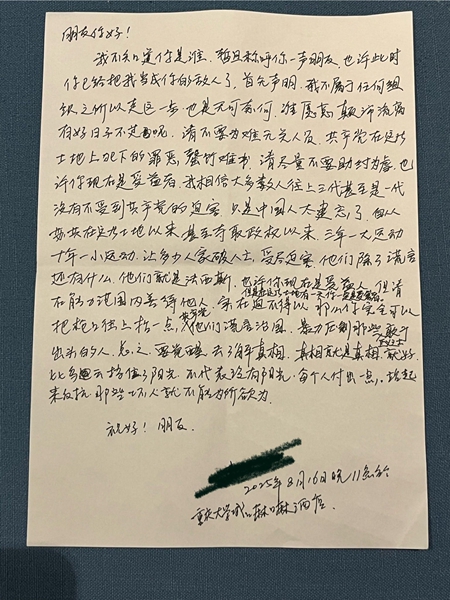 朋友你好!
我不知道你是谁,暂且称呼你一声朋友,也许此时
你已经把我当成你的敌人了,首先声明,我不属于任何组
织,之所以走这一步,也是无可奈何,谁愿意颠沛流离
有好日子不过呢,请不要为难无关人员,共产党在这片
土地上犯下的罪恶,罄竹难书,请尽量不要助纣为虐,也
许你现在是受益者,我相信大多数人往上三代甚至是一代
没有不受到共产党的迫害,只是中国人太健忘了,自从
共在这片土地以来,甚至夺取政权以来,三年一大运动
十年一小运动,让多少人家破人亡,受尽迫害,他们除了谎言
还有什么,他们就是法西斯,也许你现在是受益人,但请
但是在这片土地有一天你一定是受害者
在能力范围内善待他人,实在迫不得以,那么你完全可以
把枪口往上抬一点,共产党他们谎言治国,暴力压制那些敢于
出头的人,总之,要觉醒,去了解真相,真相就是真相,就好
比乌云挡住了阳光,不代表没有阳光,每个人付出一点,站起
来反抗,那些坏人就不能为所欲为.
祝好!朋友.
2025年8月16日晚11点于
重庆大学城 酒店.